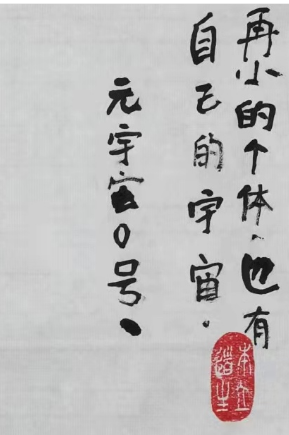 再小的个体.也有
自己的宇宙.
元宇宙0号.